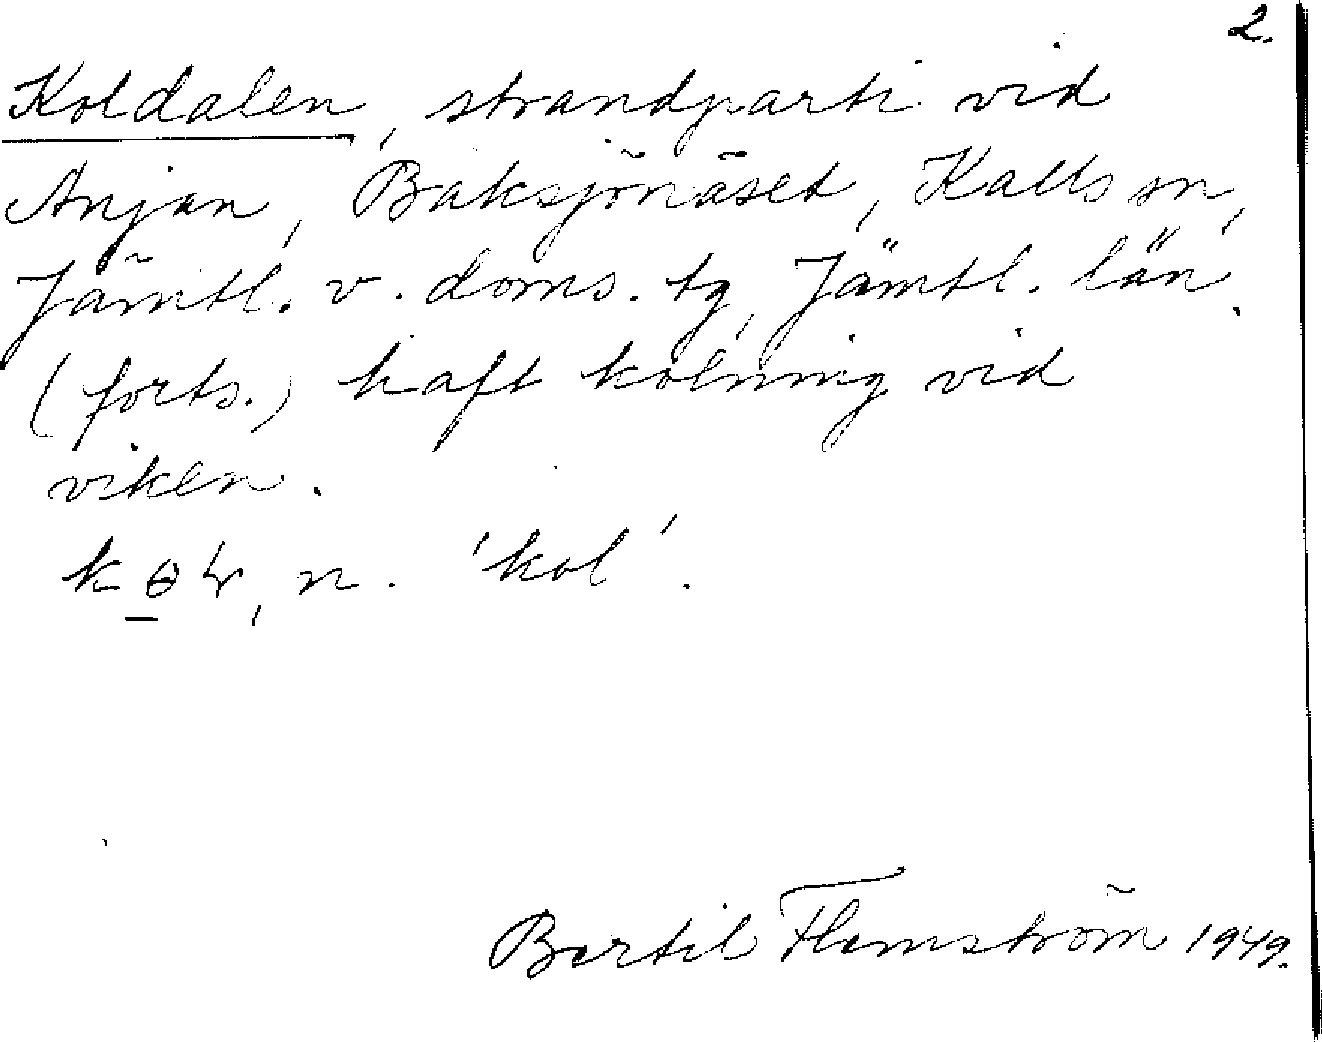 2.
Koldalen, strandparti vid
Anjan, Baksjönäset, Kalls sn,
Jämtl. v. doms. tg, Jämtl. län.
(forts.) haft kolning vid
viken.
n. 'kol'.
Bertil Flemström 1949.